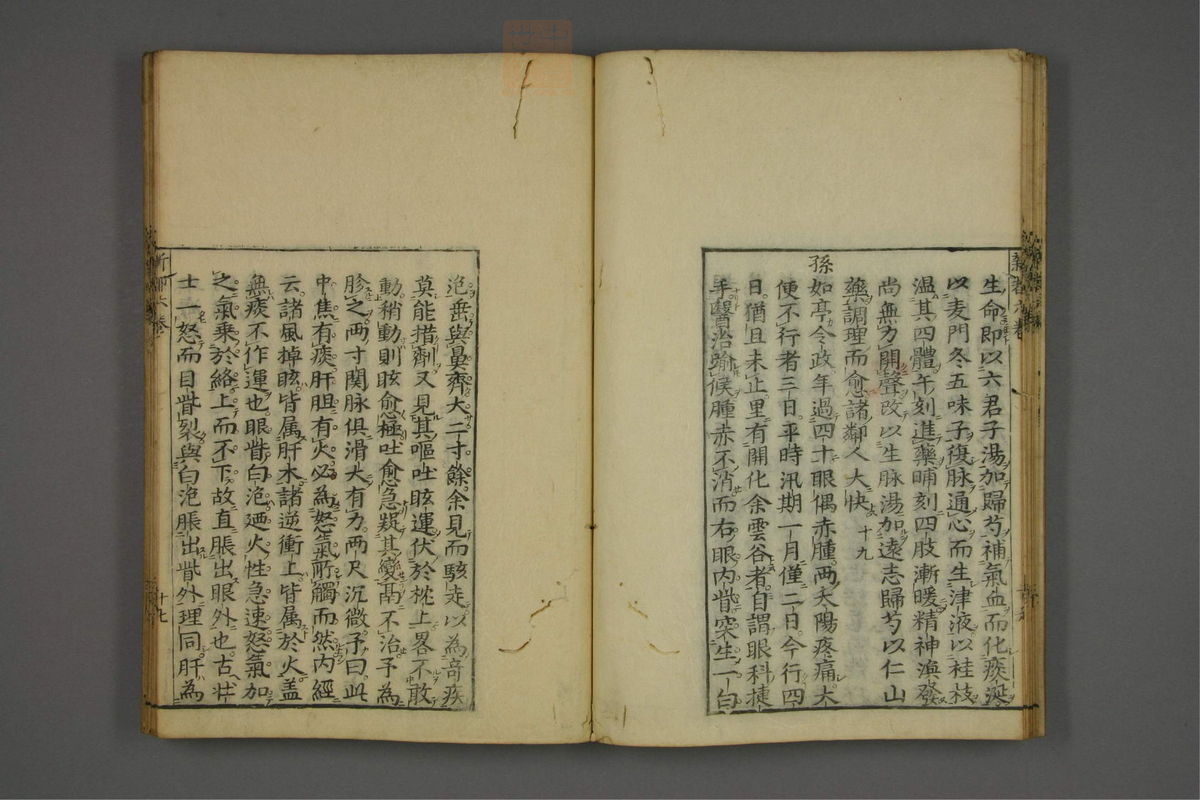 生命即以六君子湯加歸芍補氣血而化痰涎
以麦門冬五味子復脉通心而生津液以桂枝
温其四體午刻進藥晡刻四肢漸暖精神渙發
尚無力開聲改以生脉湯加遠志歸芍以仁山
藥調理而愈諸鄰人大快 十九
孫
如亭令政年過四十眼偶赤腫两太陽疼痛大
便不行者三日平時汛期一月僅二日今行四
日猶且未止里有開化余雲谷者自謂眼科捷
手醫治踰候腫赤不消而右眼内眥突生一白
泡垂與鼻齊大二寸餘余見而駭走以為竒疾
莫能措劑又見其嘔吐眩運伏於枕上畧不敢
動稍動則眩愈極吐愈急疑其變髙不治予為
胗之两寸関脉俱滑大有力两尺沉微予曰此
中焦有痰肝胆有火必為怒氣所觸而然内經
云諸風掉眩皆属肝木諸逆衝上皆属於火盖
無痰不作運也眼眥白泡廼火性急速怒氣加
之氣乘於絡上而不下故直脹出眼外也古壮
士一怒而目眥裂與白泡脹出眥外理同肝為
十九